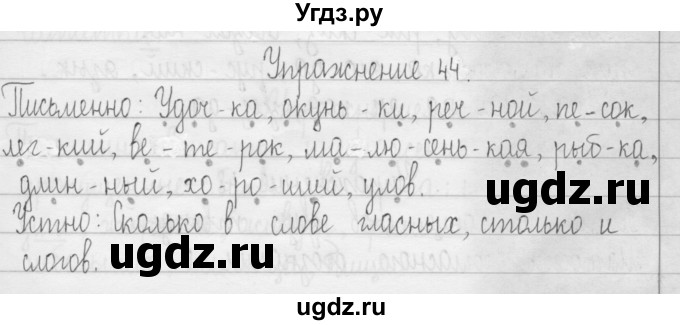 Угдз.ру
Упражнение 44.
Письменно: Удоч-ка, окунь-ки, реч-ной, пе-сок,
лег-кий, ве-те-рок, ма-лю-сень-кая, рыб-ка,
длин-ный, хо-ро-ший, улов.
Устно: Сколько в слове гласных, столько и
слогов.
ugdz.ru
ugdz.ru
ugdz.ru
ugdz.ru